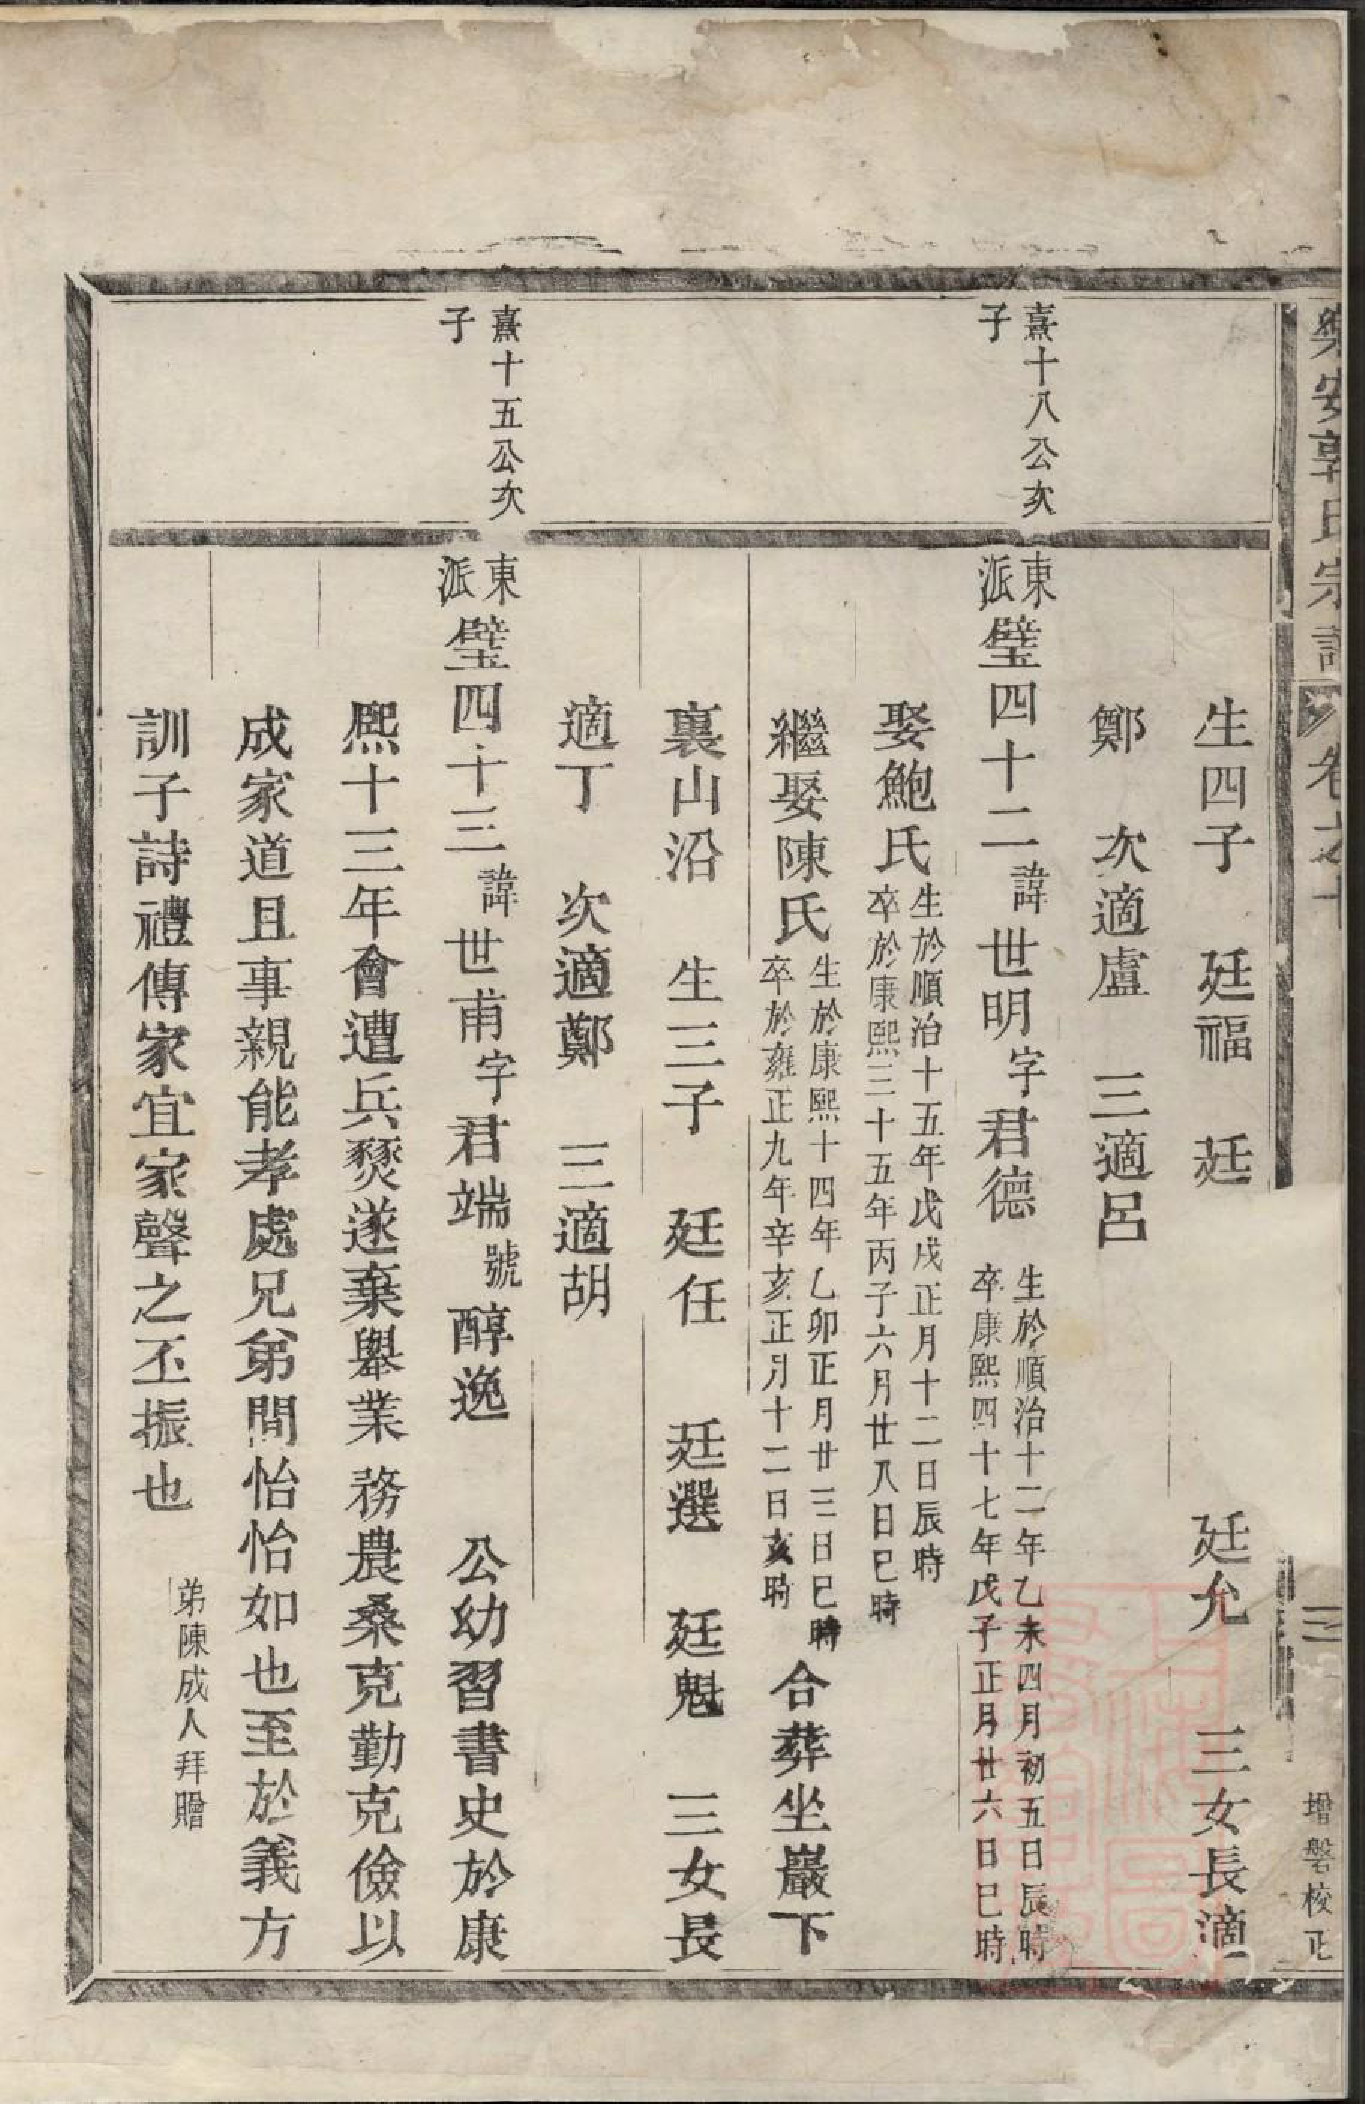 樂安郭氏宗譜 卷之十
三
增磐校正
生四子 廷福 廷 廷允 三女長適
鄭 次適盧 三適呂
熹十八公次子
東派璧四十二諱世明字君德 生於順治十二年乙未四月初五日辰時
卒康熙四十七年戊子正月廿六日巳時
娶鮑氏 生於順治十五年戊戌正月十二日辰時
卒於康熙三十五年丙子六月廿八日巳時
繼娶陳氏 生於康熙十四年乙卯正月廿三日巳時
卒於雍正九年辛亥正月十二日亥時 合葬坐巖下
裏山沿 生三子 廷任 廷選 廷魁 三女長
適丁 次適鄭 三適胡
熹十五公次子
東派璧四十三諱世甫字君端號醇逸 公幼習書史於康
熙十三年會遭兵燹遂棄舉業務農桑克勤克儉以
成家道且事親能孝處兄弟間怡怡如也至於義方
訓子詩禮傳家宜家聲之丕振也 弟陳成人拜贈